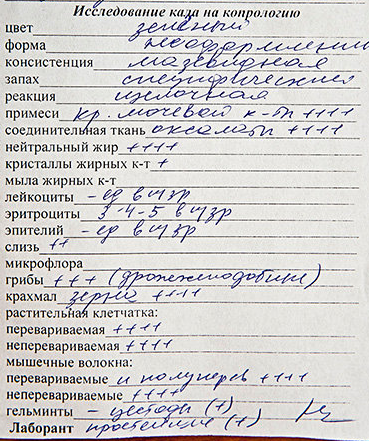 Исследование кала на копрологию
цвет зеленый
форма неоформленный
консистенция мазевидная
запах специфический
реакция щелочная
примеси кр. мочевой к-ты ++++
соединительная ткань оксалаты ++++
нейтральный жир ++++
кристаллы жирных к-т +
мыла жирных к-т
лейкоциты – ед в п/зр
эритроциты 3-4-5 в п/зр
эпителий – ед в п/зр
слизь ++
микрофлора
грибы +++ (дрожжеподобные)
крахмал зерна ++++
растительная клетчатка:
перевариваемая ++++
непереваримая ++++
мышечные волокна:
перевариваемые и полуперев ++++
непереваримые ++++
гельминты – цестоды (+)
Лаборант простейшие (+)